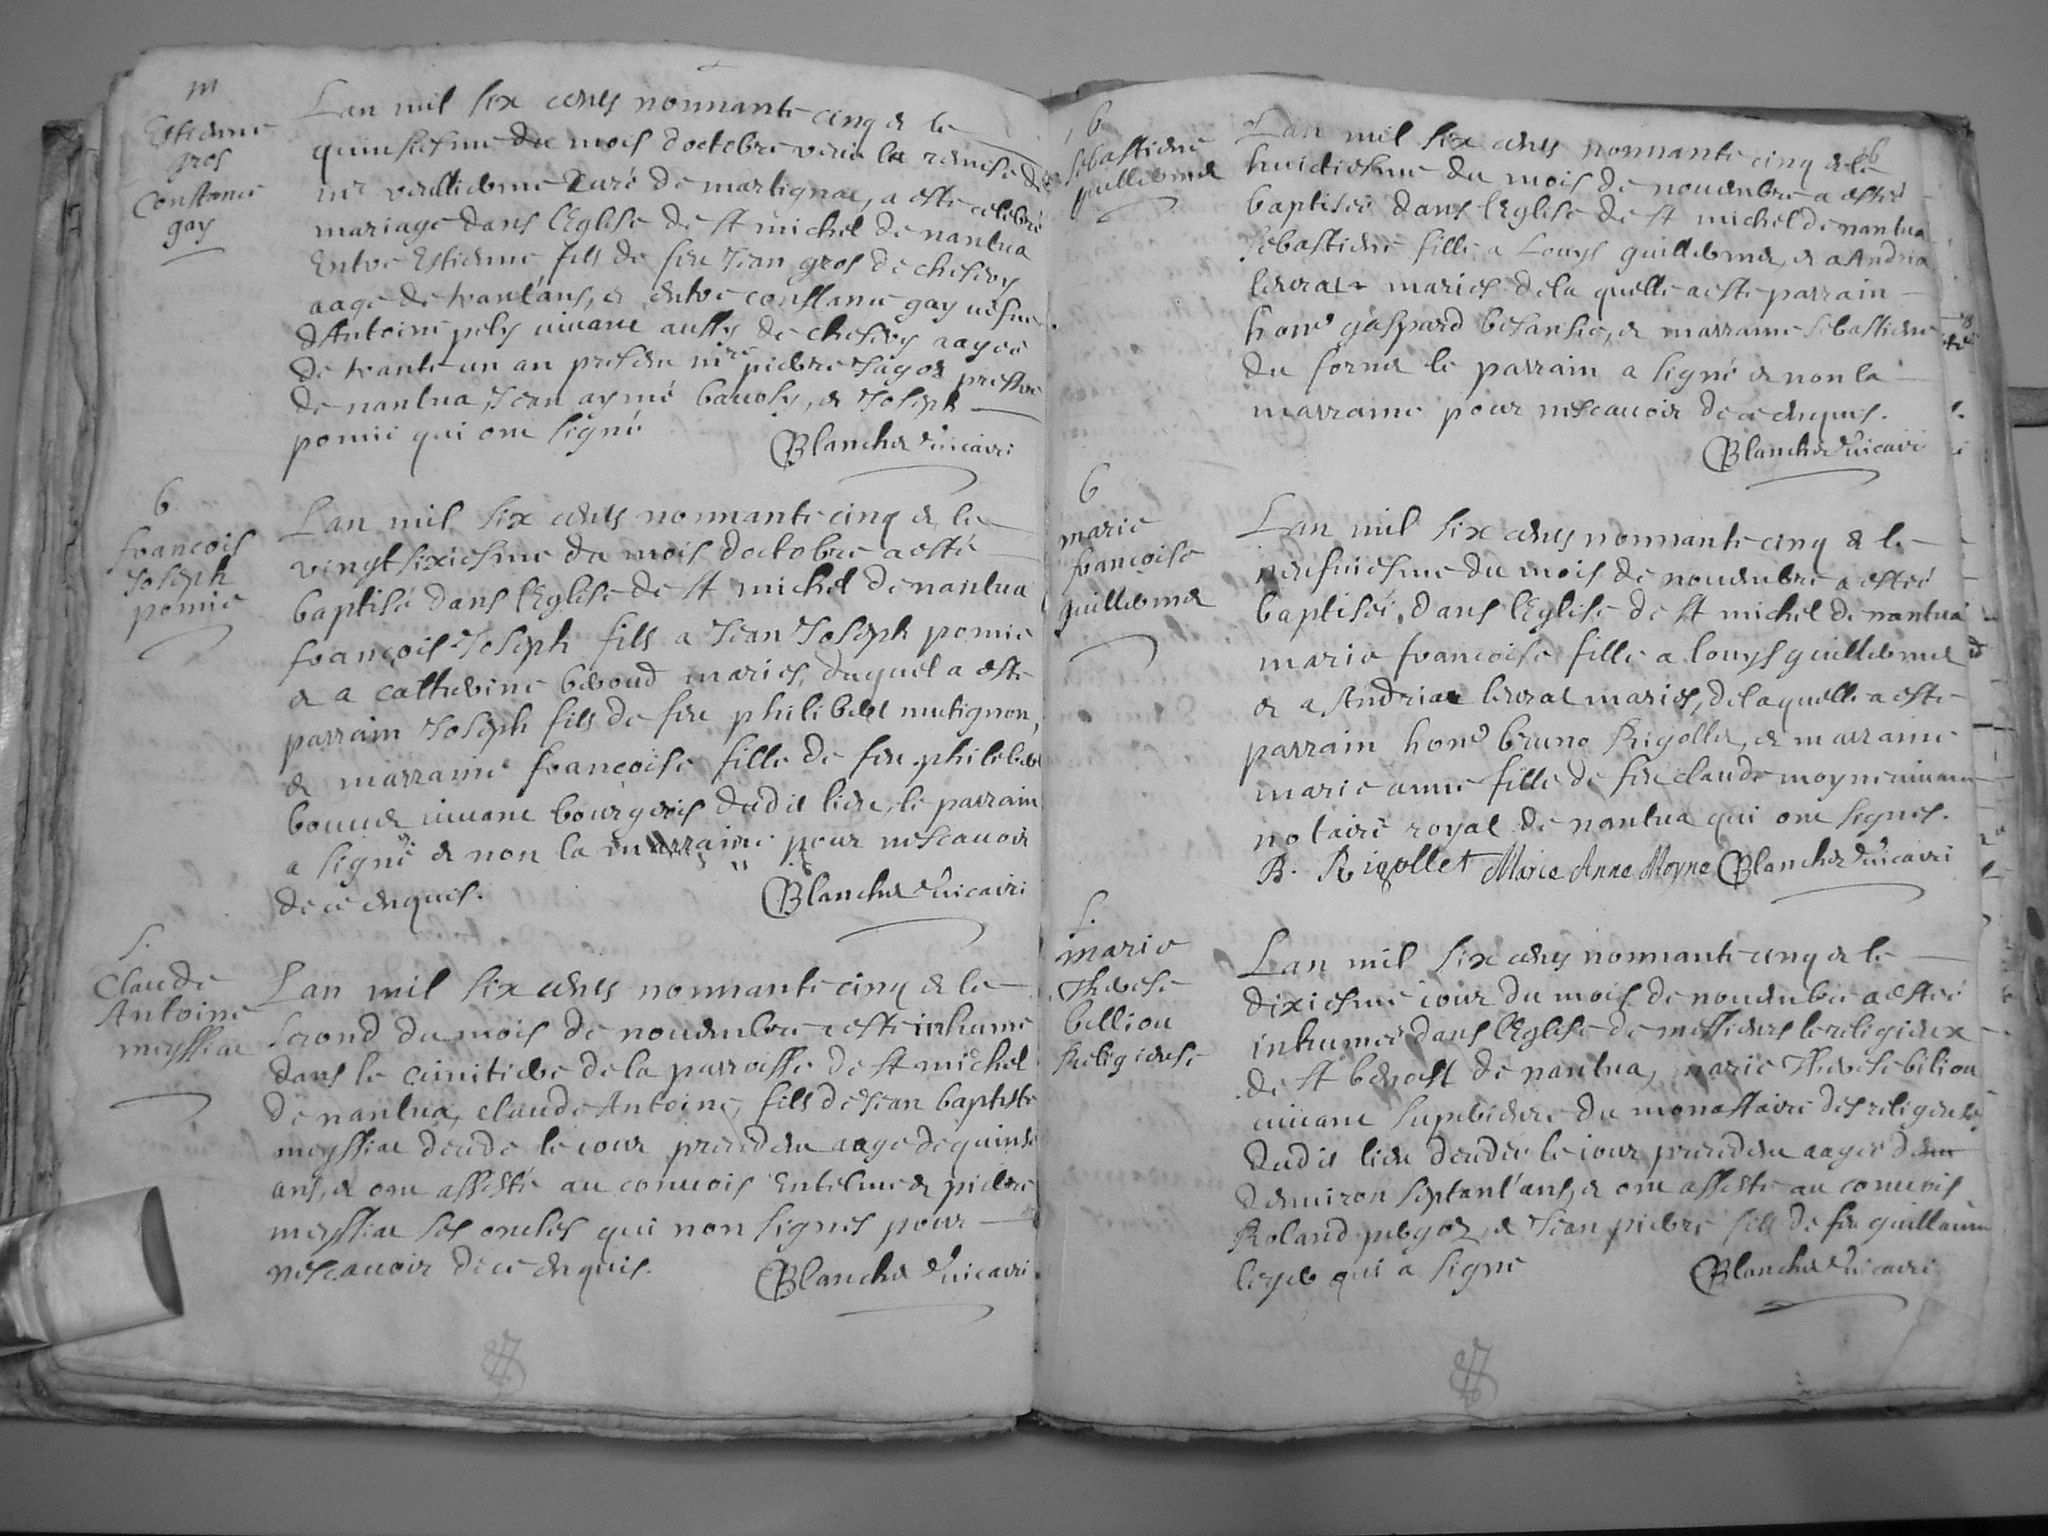 m
Estienne
gros
Constance
gay
Lan mil six cents nonnante cinq & le
quinsiesme du mois doctobre veue la remise de
mr vuillierme Curé de martignac, a este celebré
mariage dans l'Eglise de st michel de nantua
Entre Estienne fils de feu Jean gros de chesery
aagé de trant'ans, & entre constance gay vefve
d'Antoine pely vivant aussy de chesery aagée
de trante un an present mre pierre Jagot prestre
de nantua, Jean aymé & Joseph
pomie qui ont signé
Blanchet vicaire
b
francois
Joseph
pomie
Lan mil six cents nonnante cinq & le
vingt sixiesme du mois doctobre a esté
baptisé dans l'Eglise de st michel de nantua
françois Joseph fils a Jean Joseph pomie
& a catherine beroud maries, duquel a este
parrain Joseph fils de feu philibert mutignon,
& marraine françoise fille de feu philibert
vivant bourgeois dudit lieu, le parrain
a signé & non la marraine pour nescavoir
de ce enquis.
Blanchet vicaire
S.
Claude
Antoine
meyssiat
Lan mil six cents nonnante cinq & le
second du mois de novembre a este inhumé
dans le cimitiere de la parroisse de st michel
de nantua, claude Antoine, fils de Jean baptiste
meyssiat decede le iour precedent aage de quinse
ans, & ont assisté au convois Entelme & pierre
meyssiat ses oncles qui non signes pour
nescavoir de ce enquis.
Blanchet vicaire
b
sebastiene
guillermet
Lan mil six cents nonnante cinq & le
huictiesme du mois de novembre a estée
baptisée dans l'Eglise de st michel de nantua
sebastiene fille a Louys guillermet, & a Andria
levrat maries de la quelle a este parrain
hone gaspard besansie, & marraine sebastiene
du fornet le parrain a signé & non la
marraine pour nescavoir de ce enquis.
Blanchet vicaire
b
marie
françoise
guillermet
Lan mil six cents nonnante cinq & le
neufviesme du mois de novembre a estée
baptisée, dans l'Eglise de st michel de nantua
marie francoise fille a louys guillermet
& a Andria levrat maries, de laquelle a este
parrain hone bruno Rigollet, & marraine
marie anne fille de feu claude moyne vivant
notaire royal de nantua qui ont signes.
B. Rigollet Marie Anne Moyne Blanchet vicaire
S.
marie
Therese
billiou
Religieuse
Lan mil six cents nonnante cinq & le
dixiesme iour du mois de novembre a estée
inhumée dans l'Eglise de messieurs le religieux
de st benoist de nantua, marie Therese biliou
vivant superieure du monastaire des religieuse
dudit lieu decedée le iour precedent aagée
denviron septant'ans, & ont assisté au convois
Roland & Jean pierre fils de feu guillaume
qui a signe
Blanchet vicaire